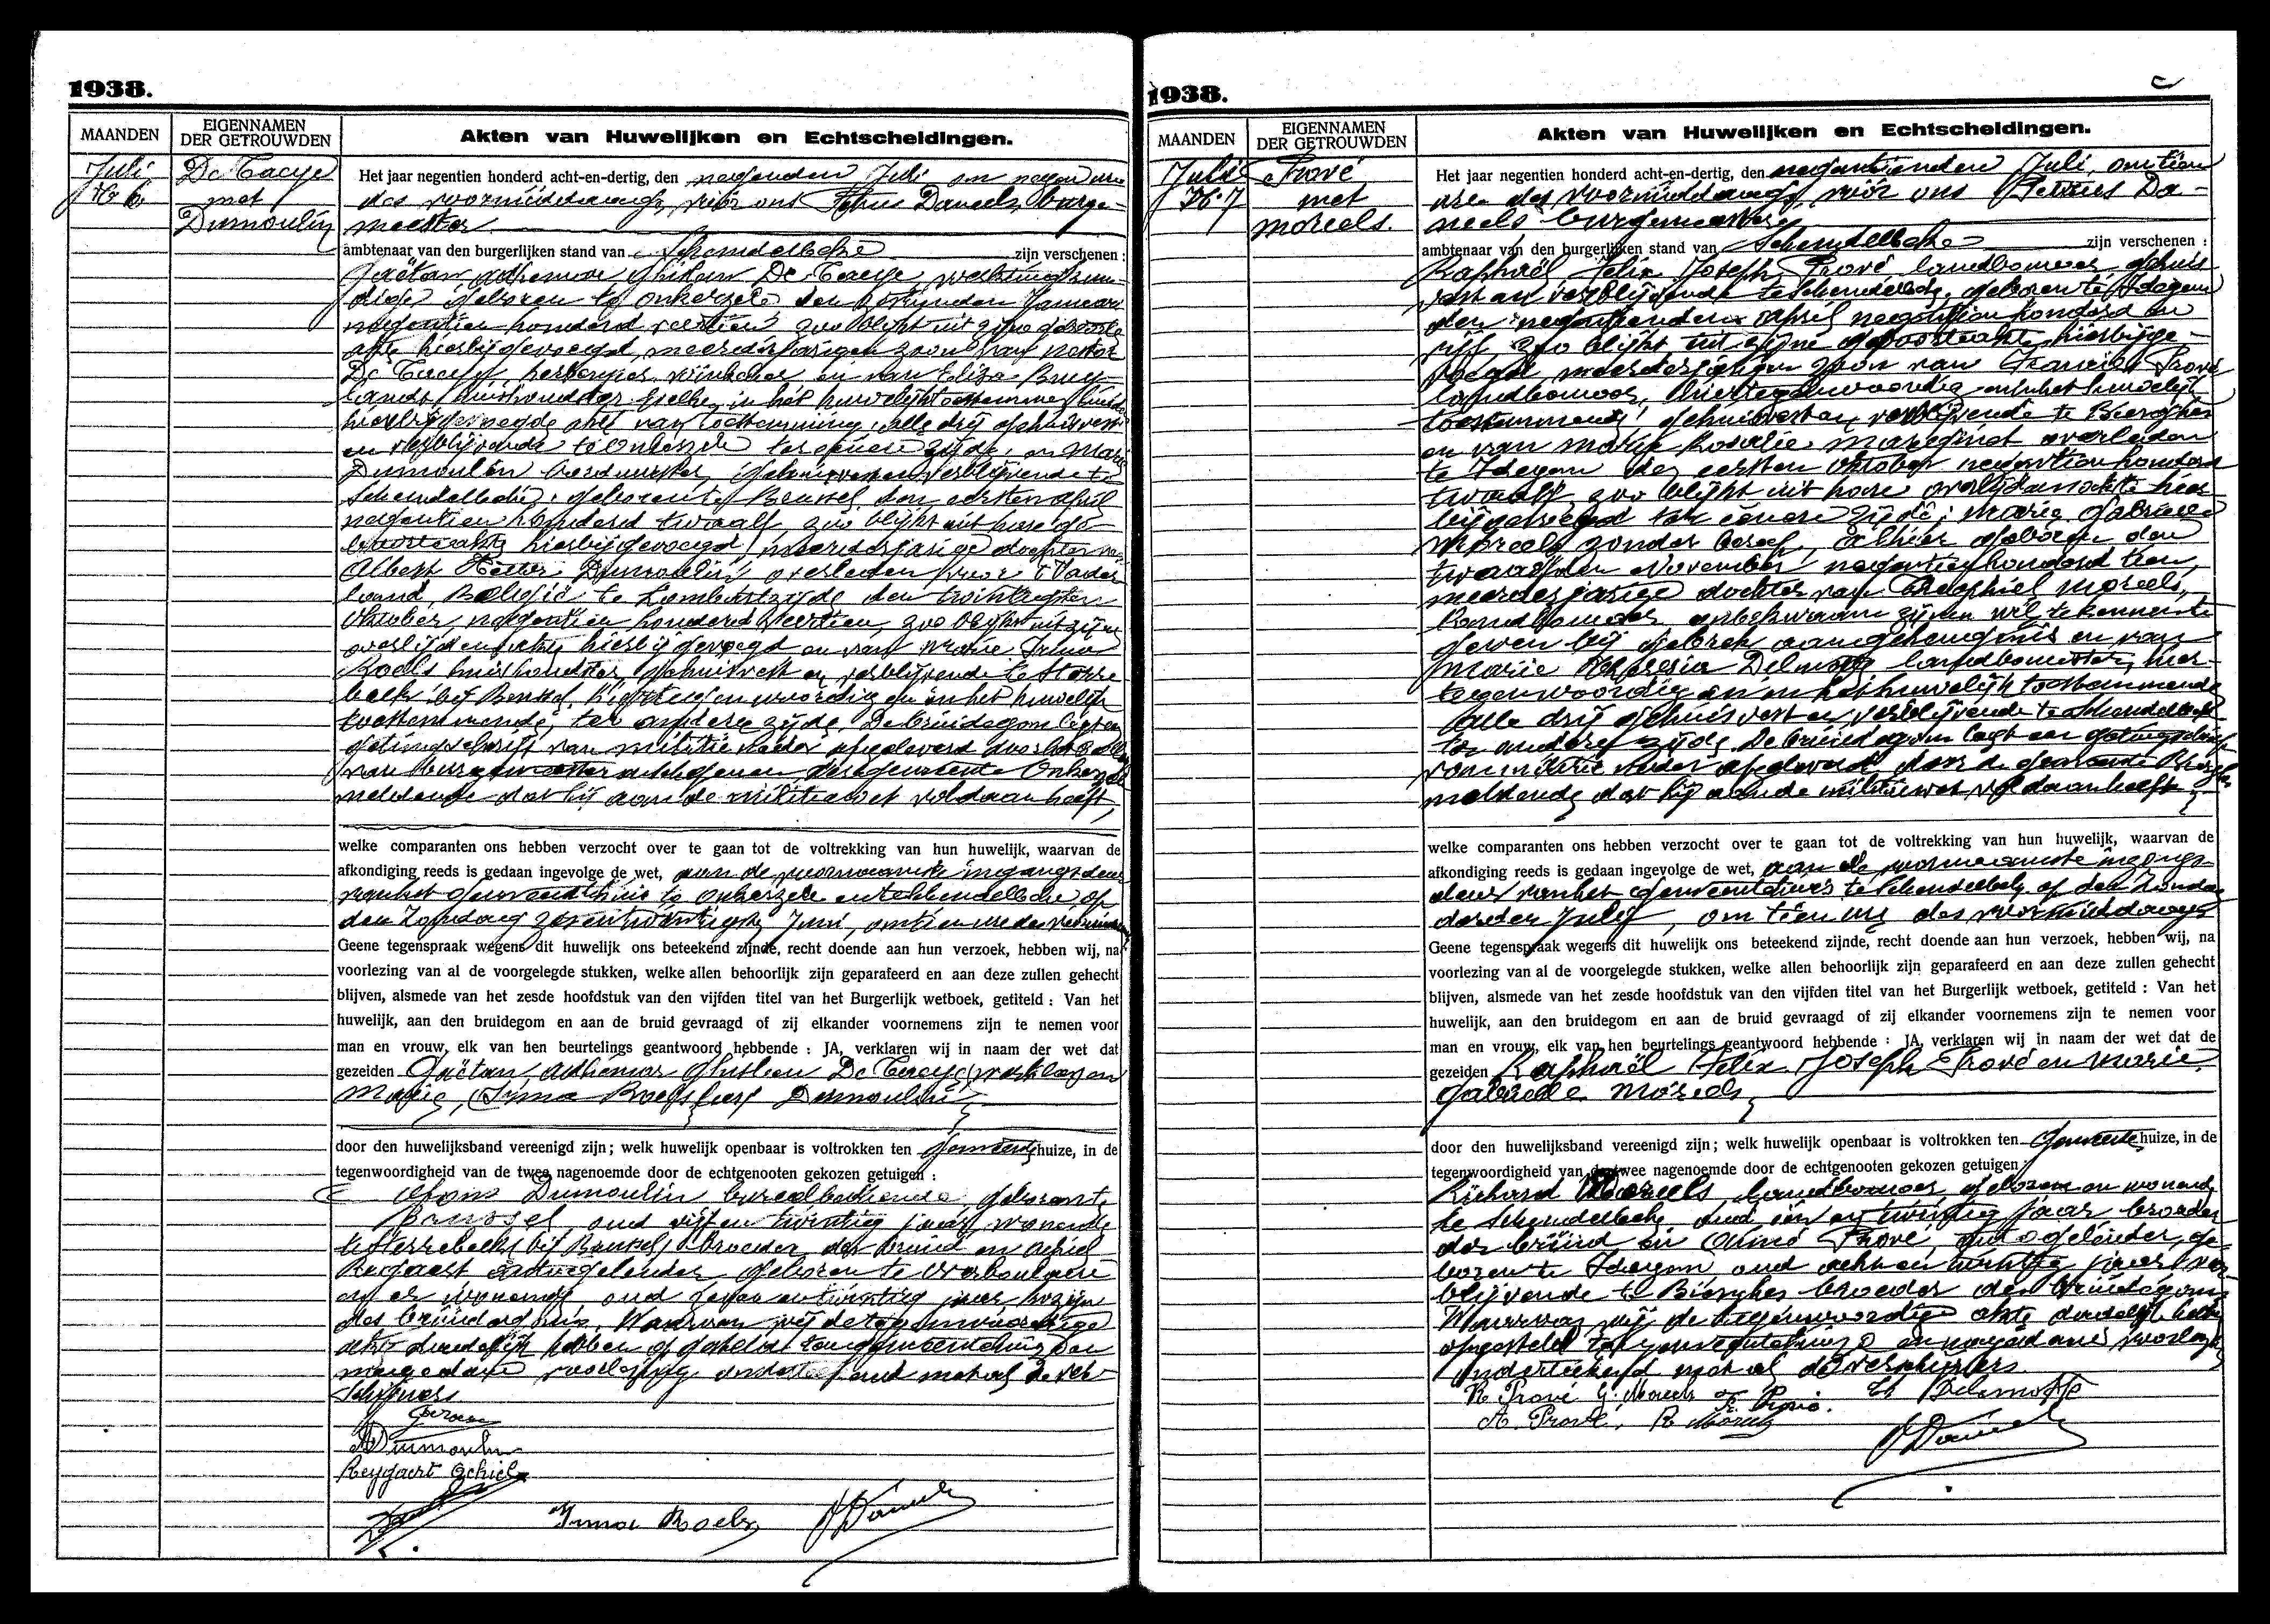 1938.
MAANDEN
EIGENNAMEN
DER GETROUWDEN
Akten van Huwelijken en Echtscheidingen.
Juli
No 6
De Taeye
met
Dumoulin
Het jaar negentien honderd acht-en-dertig, den negenden Juli om negen ure
des voormiddags, vóór ons Petrus Daneels, burge-
meester
ambtenaar van den burgerlijken stand van Schendelbeke zijn verschenen :
Gaëtan Adhemar Ghislain De Taeye, werktuigkun-
dige geboren te Onkerzele den Januari
negentien honderd veertien zoo blijkt uit zijne geboorte
akte hierbijgevoegd, meerderjarigen zoon van Nestor
De Taeye, herbergier, en van Eliza
huishoudster, beiden in het huwelijk toestemmend luidens
hierbijgevoegde akte van toestemming, alle drij gehuisvest
en verblijvende te Onkerzele ter eenere zijde, en Marie
Dumoulin gehuisvest en verblijvende te
Schendelbeke, geboren te Brussel, den eersten april
negentien honderd twaalf, zoo blijkt uit hare ge-
boorteakte hierbijgevoegd, meerderjarige dochter van
Albert Dumoulin overleden voor 't Vader-
land, België te Lombartzijde den
Oktober negentien honderd veertien, zoo blijkt uit zijne
overlijdensakte hierbij gevoegd en van Marie Irma
Roels huishoudster, gehuisvest en verblijvende te Sterre-
beek bij Brussel, hiertegenwoordig en in het huwelijk
toestemmende, ter andere zijde. De bruidegom legt een
getuigschrift van militie neder afgeleverd door het
van burgemeester en schepenen der gemeente Onkerzele
meldende dat hij aan de militiewet voldaan heeft,
welke comparanten ons hebben verzocht over te gaan tot de voltrekking van hun huwelijk, waarvan de
afkondiging reeds is gedaan ingevolge de wet, aan de voornaamste ingangsdeur
van het gemeentehuis te Onkerzele en Schendelbeke, op
den Zondag zesentwintigste Juni, om tien ure des voormiddags
Geene tegenspraak wegens dit huwelijk ons beteekend zijnde, recht doende aan hun verzoek, hebben wij, na
voorlezing van al de voorgelegde stukken, welke allen behoorlijk zijn geparafeerd en aan deze zullen gehecht
blijven, alsmede van het zesde hoofdstuk van den vijfden titel van het Burgerlijk wetboek, getiteld : Van het
huwelijk, aan den bruidegom en aan de bruid gevraagd of zij elkander voornemens zijn te nemen voor
man en vrouw, elk van hen beurtelings geantwoord hebbende : JA, verklaren wij in naam der wet dat
gezeiden Gaëtan, Adhemar Ghislain De Taeye
Marie, Irma Dumoulin
door den huwelijksband vereenigd zijn; welk huwelijk openbaar is voltrokken ten Gemeentehuize, in de
tegenwoordigheid van de twee nagenoemde door de echtgenooten gekozen getuigen :
Dumoulin bureelbediende geboren te
Brussel, oud vijf en twintig jaar, wonende
te Sterrebeek bij Brussel, broeder der bruid en Achiel
Reygaert autogeleider geboren te
en er wonende oud zeven en twintig jaar, kozijn
des bruidegoms. Waarvan wij de tegenwoordige
akte dadelijk hebben opgesteld ten gemeentehuize en
na gedane voorlezing onderteekend met al de ver-
schijners
ADumoulin
Reygaert Achiel
Irma Roels
PDaneels
1938.
MAANDEN
EIGENNAMEN
DER GETROUWDEN
Akten van Huwelijken en Echtscheidingen.
Juli
No 7
Prové
met
Moreels.
Het jaar negentien honderd acht-en-dertig, den negentienden Juli, om tien
ure des voormiddags, vóór ons Petrus Da-
neels burgemeester
ambtenaar van den burgerlijken stand van Schendelbeke zijn verschenen :
Raphaël Felix Joseph Prové landbouwer gehuis-
vest en verblijvende te Schendelbeke, geboren te Idegem
den negentienden April negentien honderd en
vijf zoo blijkt uit zijne geboorteakte hierbijge-
voegd, meerderjarigen zoon van Francies Prové
landbouwer, hiertegenwoordig en in het huwelijk
toestemmend, gehuisvest en verblijvende te Bierghes
en van Marie Rosalie overleden
te Idegem den eersten Oktober negentien honderd
twaalf, zoo blijkt uit hare overlijdensakte hier-
bijgevoegd ter eenere zijde; Marie Gabrielle
Moreels zonder beroep, alhier geboren den
twaalfden November negentien honderd tien,
meerderjarige dochter van Theophiel Moreels,
landbouwer, onbekwaam zijnen wil te kennen te
geven bij gebrek aan geheugenis en van
Marie Theresia Delmotte landbouwster, hier-
tegenwoordig en in het huwelijk toestemmende
alle drij gehuisvest en verblijvende te Schendelbeke
ter andere zijde. De bruidegom legt een getuigschrift
van militie neder afgeleverd door de gemeente Bierghes
meldende dat hij aan de militiewet voldaan heeft
welke comparanten ons hebben verzocht over te gaan tot de voltrekking van hun huwelijk, waarvan de
afkondiging reeds is gedaan ingevolge de wet, aan de voornaamste ingangs-
deur van het gemeentehuis te Schendelbeke op den Zondag
derden July, om tien ure des voormiddags
Geene tegenspraak wegens dit huwelijk ons beteekend zijnde, recht doende aan hun verzoek, hebben wij, na
voorlezing van al de voorgelegde stukken, welke allen behoorlijk zijn geparafeerd en aan deze zullen gehecht
blijven, alsmede van het zesde hoofdstuk van den vijfden titel van het Burgerlijk wetboek, getiteld : Van het
huwelijk, aan den bruidegom en aan de bruid gevraagd of zij elkander voornemens zijn te nemen voor
man en vrouw, elk van hen beurtelings geantwoord hebbende : JA, verklaren wij in naam der wet dat de
gezeiden Raphaël Felix Joseph Prové en Marie
Gabrielle Moreels
door den huwelijksband vereenigd zijn; welk huwelijk openbaar is voltrokken ten Gemeentehuize, in de
tegenwoordigheid van de twee nagenoemde door de echtgenooten gekozen getuigen :
Richard Moreels, landbouwer geboren en wonende
te Schendelbeke oud één en twintig jaar broeder
der bruid en Aimé Prové, autogeleider, ge-
boren te Idegem oud acht en twintig jaar ver-
blijvende te Bierghes broeder des bruidegoms
Waarvan wij de tegenwoordige akte dadelijk hebben
opgesteld ten gemeentehuize en na gedane voorlezing
onderteekend met al de verschijners
R. Prové G. Moreels F. Prové. Th Delmotte
A. Prové. R Moreels
PDaneels